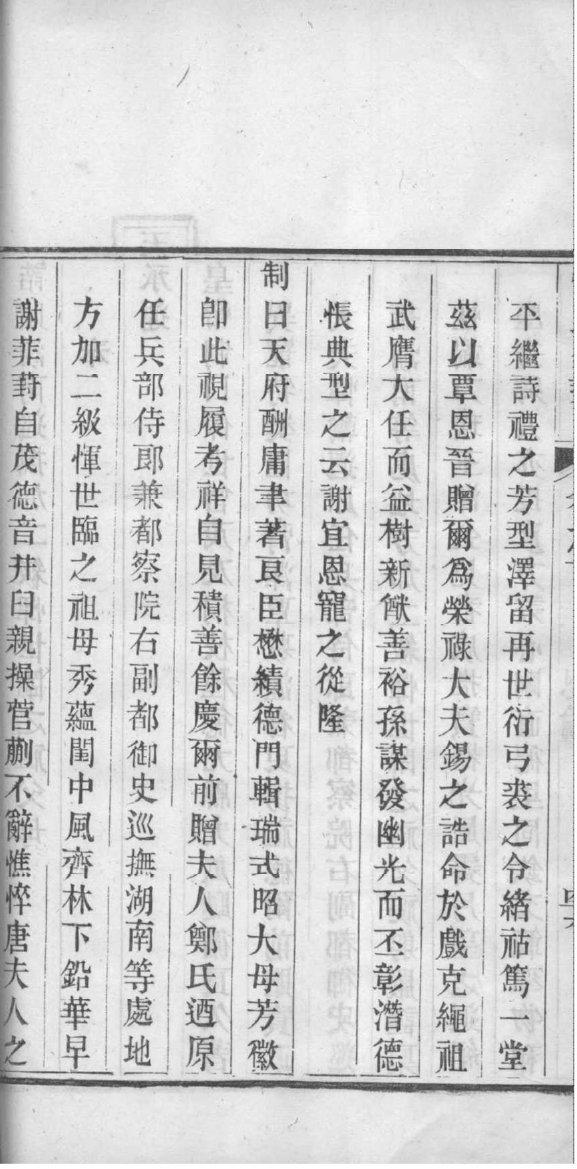 平繼詩禮之芳型澤留再世衍弓裘之令緒祜篤一堂
茲以覃恩晉贈爾爲榮祿大夫錫之誥命於戲克繩祖
武膺大任而益樹新猷善裕孫謀發幽光而丕彰潛德
悵典型之云謝宜恩寵之從隆
制曰天府酬庸聿著良臣懋績德門輯瑞式昭大母芳徽
卽此視履考祥自見積善餘慶爾前贈夫人鄭氏迺原
任兵部侍郎兼都察院右副都御史巡撫湖南等處地
方加二級惲世臨之祖母秀蘊閨中風齊林下鉛華早
謝菲葑自茂德音井臼親操菅蒯不辭憔悴唐夫人之